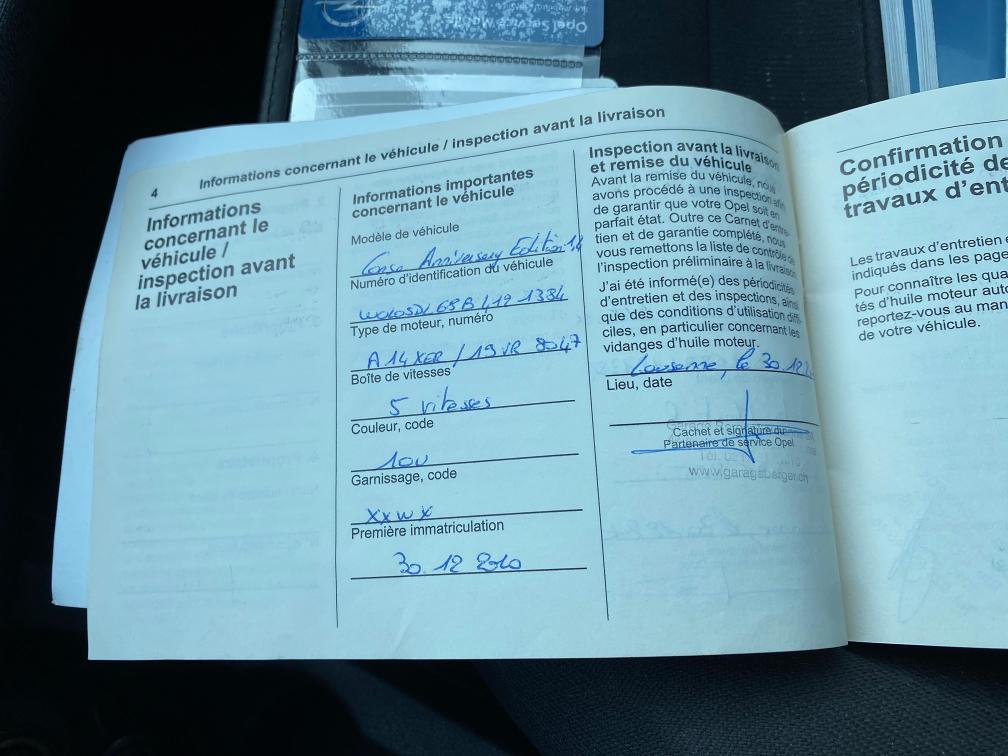 Opel Service Mobile
4
Informations concernant le véhicule / inspection avant la livraison
Informations
concernant le
véhicule /
inspection avant
la livraison
Informations importantes
concernant le véhicule
Modèle de véhicule
Corsa Anniversary Edition 1.4
Numéro d'identification du véhicule
Type de moteur, numéro
A14XER / 19 VR 8047
Boîte de vitesses
5 vitesses
Couleur, code
10U
Garnissage, code
xxwx
Première immatriculation
30.12 2010
Inspection avant la livraison
et remise du véhicule
Avant la remise du véhicule, nous
avons procédé à une inspection afin
de garantir que votre Opel soit en
parfait état. Outre ce Carnet d'entre-
tien et de garantie complété, nous
vous remettons la liste de contrôle de
l'inspection préliminaire à la livraison.
J'ai été informé(e) des périodicités
d'entretien et des inspections, ainsi
que des conditions d'utilisation diffi-
ciles, en particulier concernant les
vidanges d'huile moteur.
Lausanne, le 30.12
Lieu, date
Cachet et signature du
Partenaire de service Opel
www.garageberger.ch
Confirmation
périodicité de
travaux d'ent
Les travaux d'entretien
indiqués dans les page
Pour connaître les qua
tés d'huile moteur auto
reportez-vous au man
de votre véhicule.